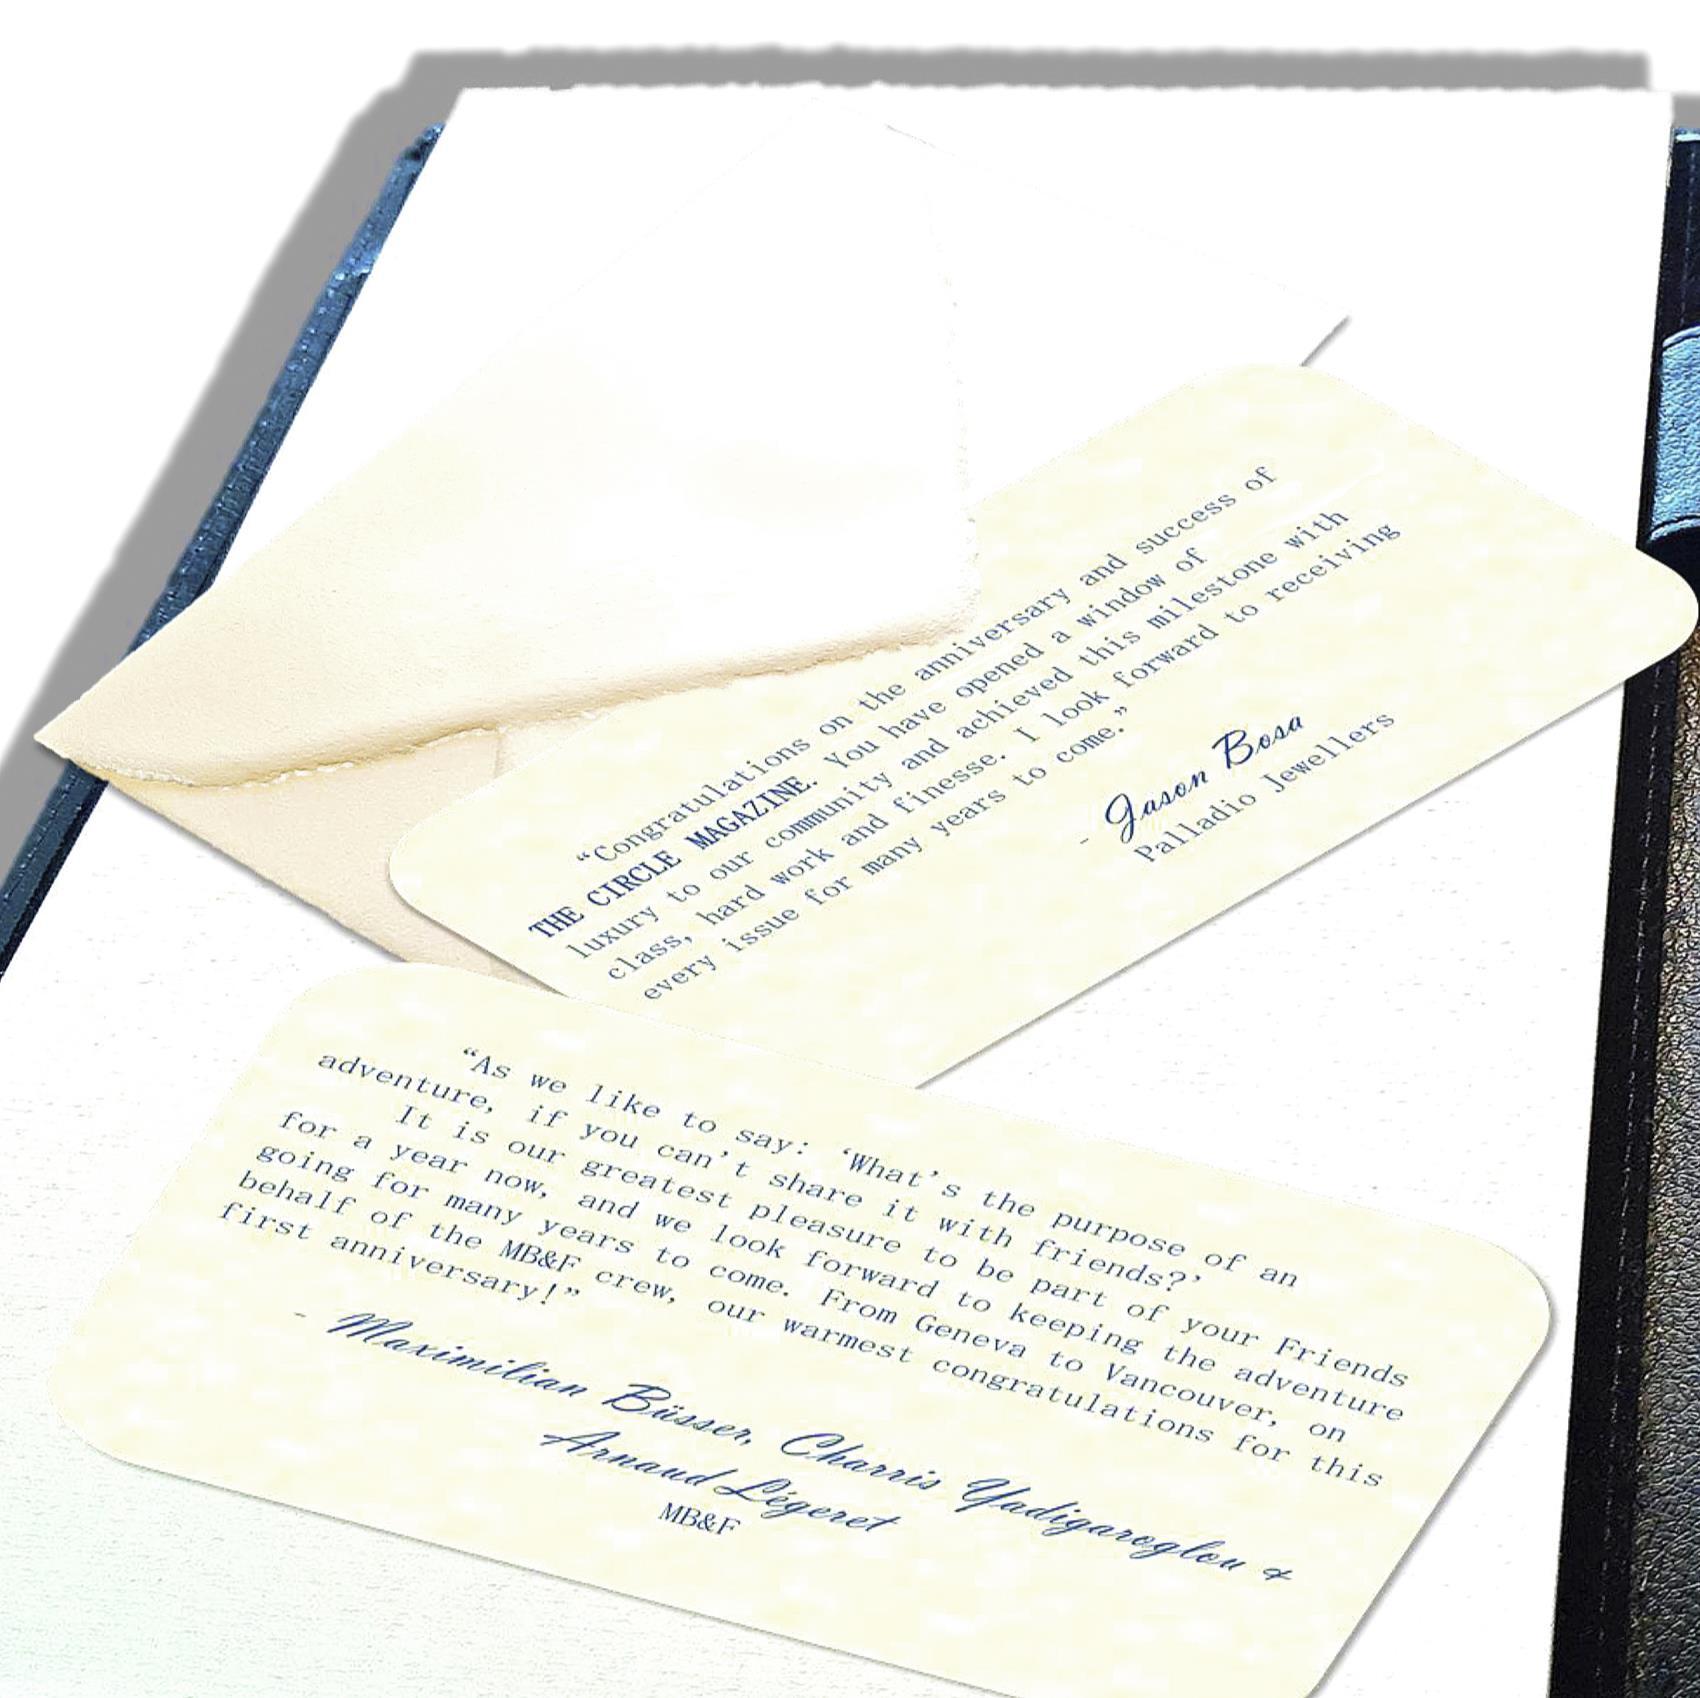 “Congratulations on the anniversary and success of
THE CIRCLE MAGAZINE. You have opened a window of
luxury to our community and achieved this milestone with
class, hard work and finesse. I look forward to receiving
every issue for many years to come.”
- Jason Bosa
Palladio Jewellers
“As we like to say: ‘What’s the purpose of an
adventure, if you can’t share it with friends?’
It is our greatest pleasure to be part of your Friends
for a year now, and we look forward to keeping the adventure
going for many years to come. From Geneva to Vancouver, on
behalf of the MB&F crew, our warmest congratulations for this
first anniversary!”
- Maximilian Büsser, Charris Yadigaroglou &
Arnaud Légeret
MB&F